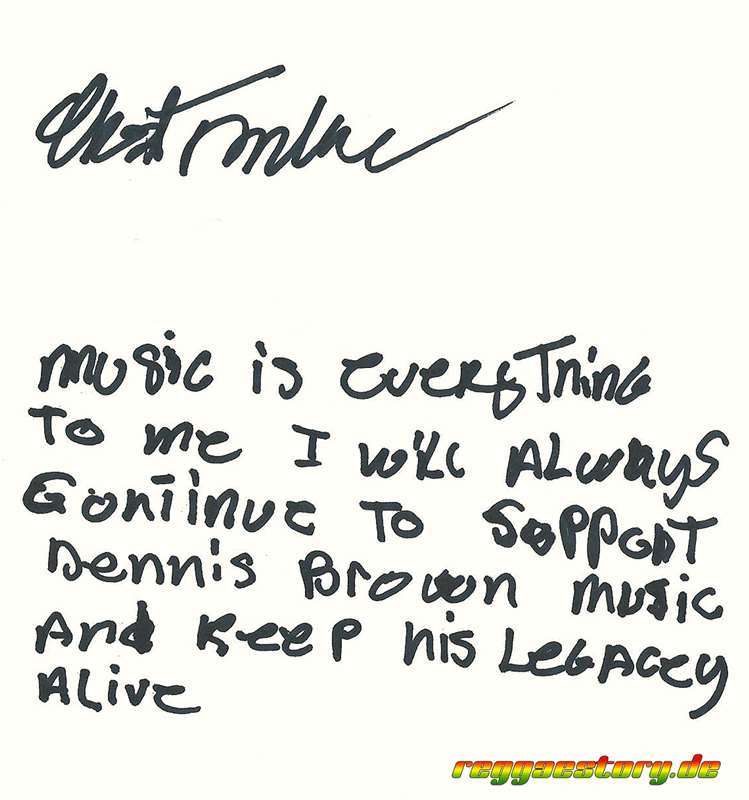 music is everything
To me I will ALWAYS
Continue To Support
Dennis Brown music
And Keep his LegAcey
ALive
reggaestory.de